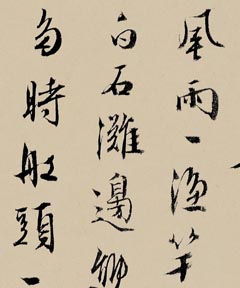 風雨一漁竿
白石灘邊
時舡頭一